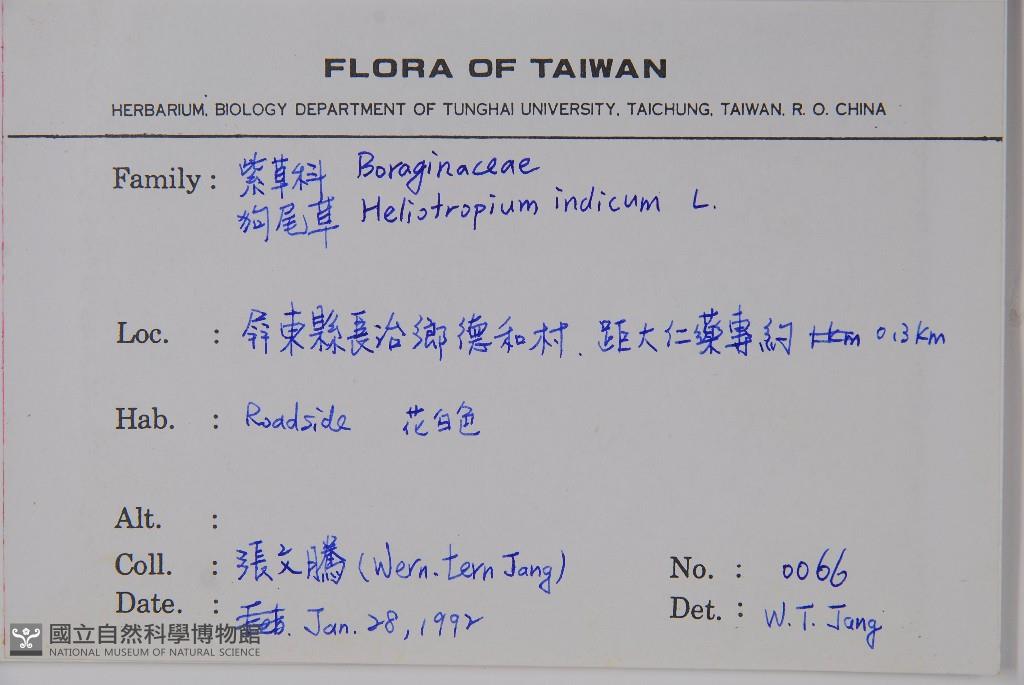 FLORA OF TAIWAN
HERBARIUM, BIOLOGY DEPARTMENT OF TUNGHAI UNIVERSITY, TAICHUNG, TAIWAN, R. O. CHINA
Family : 紫草科 Boraginaceae
狗尾草 Heliotropium indicum L.
Loc. : 屏東縣長治鄉德和村. 距大仁藥專約 1km 0.3km
Hab. : Roadside 花白色
Alt. :
Coll. : 張文騰 (Wern-tern Jang)
No. : 0066
Date. : Feb. Jan. 28, 1992
Det. : W. T. Jang
國立自然科學博物館
NATIONAL MUSEUM OF NATURAL SCIENCE